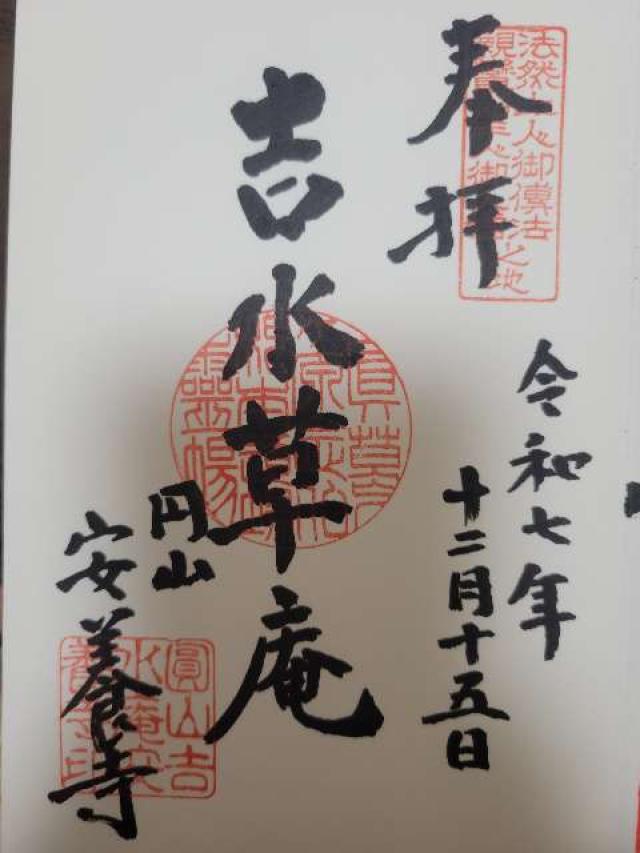 奉拝
法然上人御傳法
之地
令和七年
十二月十五日
吉水草庵
円山
安養寺
圓山吉
水庵安
養寺印